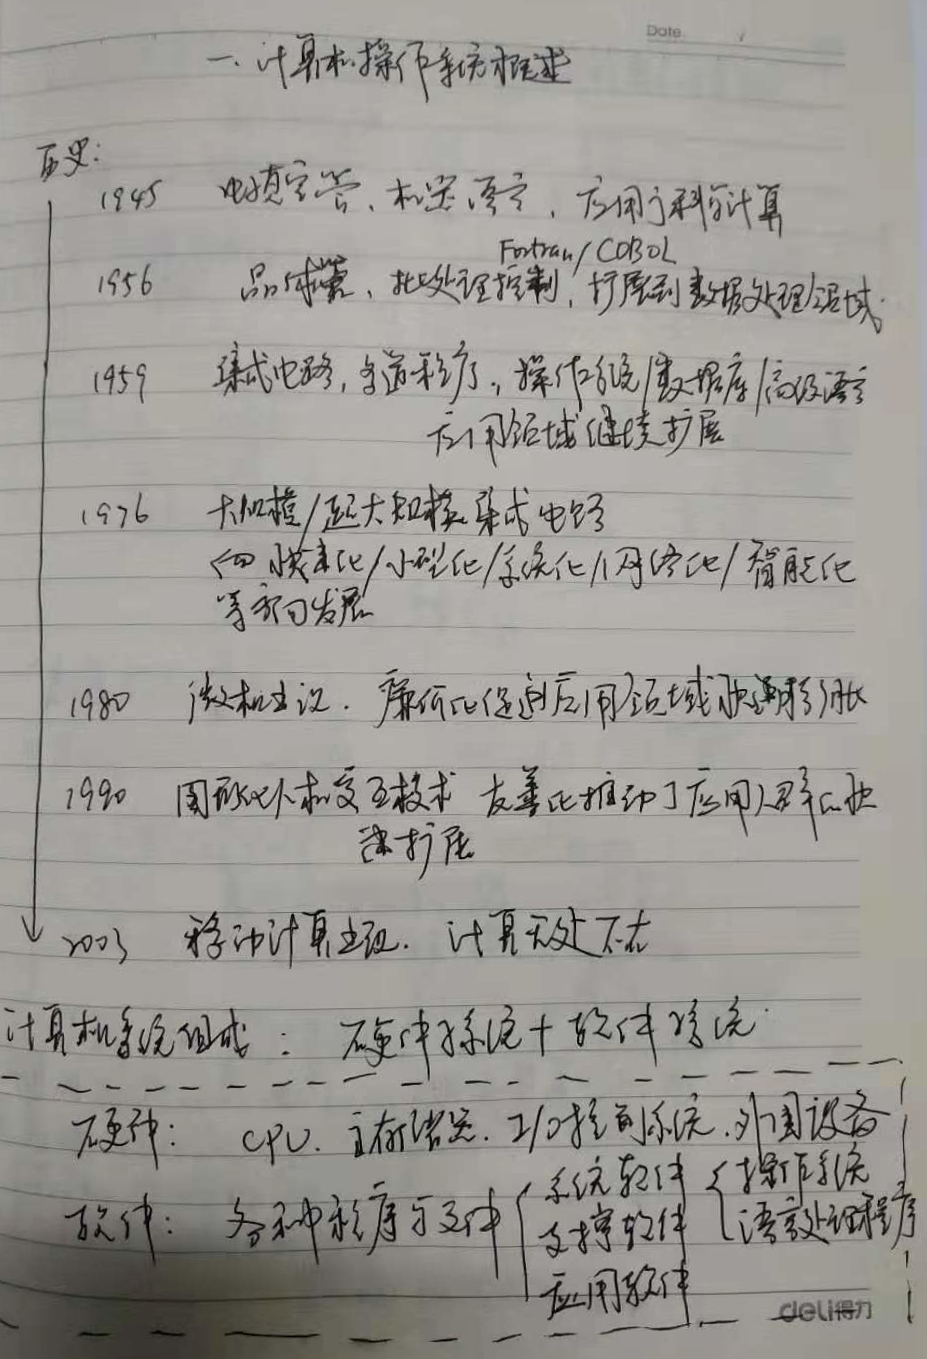 Date
一.计算机操作系统概述
历史:
1945 电子真空管、机器语言、应用于科学计算
Fortran/COBOL
1956 晶体管、批处理控制,扩展到数据处理领域
1959 集成电路,多道程序,操作系统/数据库/高级语言
应用领域继续扩展
1976 大规模/超大规模集成电路
向 化/小型化/系统化/网络化/智能化
等方向发展
1980 微机出现.廉价化促进应用领域快速膨胀
1990 图形化人机交互技术 友善化推动了应用人群的快
速扩展
2003 移动计算出现.计算无处不在
计算机系统组成:硬件系统+软件系统
硬件:CPU.主存储器.I/O控制系统.外围设备
软件:各种程序与文件
系统软件
支撑软件
应用软件
操作系统
语言处理程序
deli得力